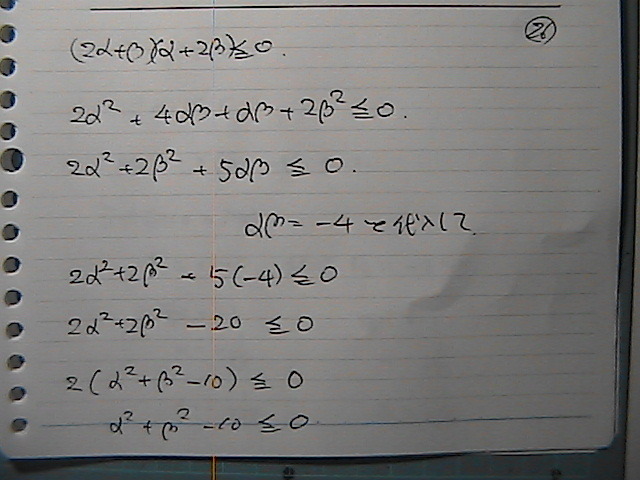 26
(2α+β)(α+2β)≦0.
2α²+4αβ+αβ+2β²≦0.
2α²+2β²+5αβ≦0.
αβ=-4を代入して
2α²+2β²+5(-4)≦0
2α²+2β²-20≦0
2(α²+β²-10)≦0
α²+β²-10≦0